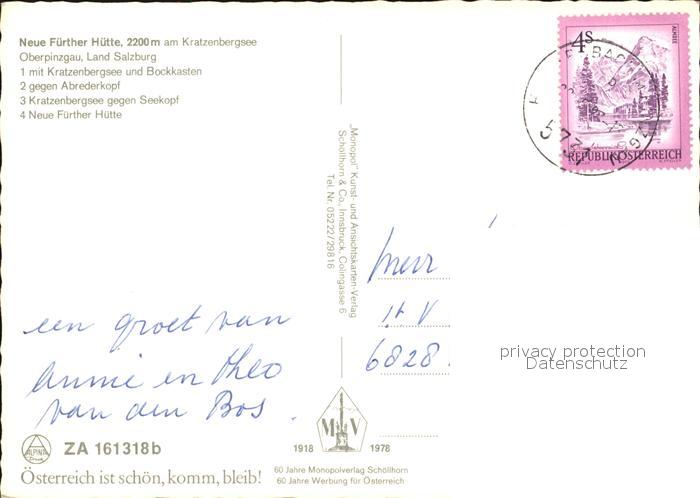 Neue Fürther Hütte, 2200m am Kratzenbergsee
Oberpinzgau, Land Salzburg
1 mit Kratzenbergsee und Bockkasten
2 gegen Abrederkopf
3 Kratzenbergsee gegen Seekopf
4 Neue Fürther Hütte
4S
ALMSEE
REPUBLIK ÖSTERREICH
"Monopol" Kunst- und Ansichtskarten-Verlag
Schöllhorn & Co., Innsbruck, Colingasse 6
Tel. Nr. 05222/29816
6828.
privacy protection
Datenschutz
een groet van
Annie en Theo
van den Bos.
ALPINA
Druck
ZA 161318b
1918 MV 1978
Österreich ist schön, komm, bleib!
60 Jahre Monopolverlag Schöllhorn
60 Jahre Werbung für Österreich